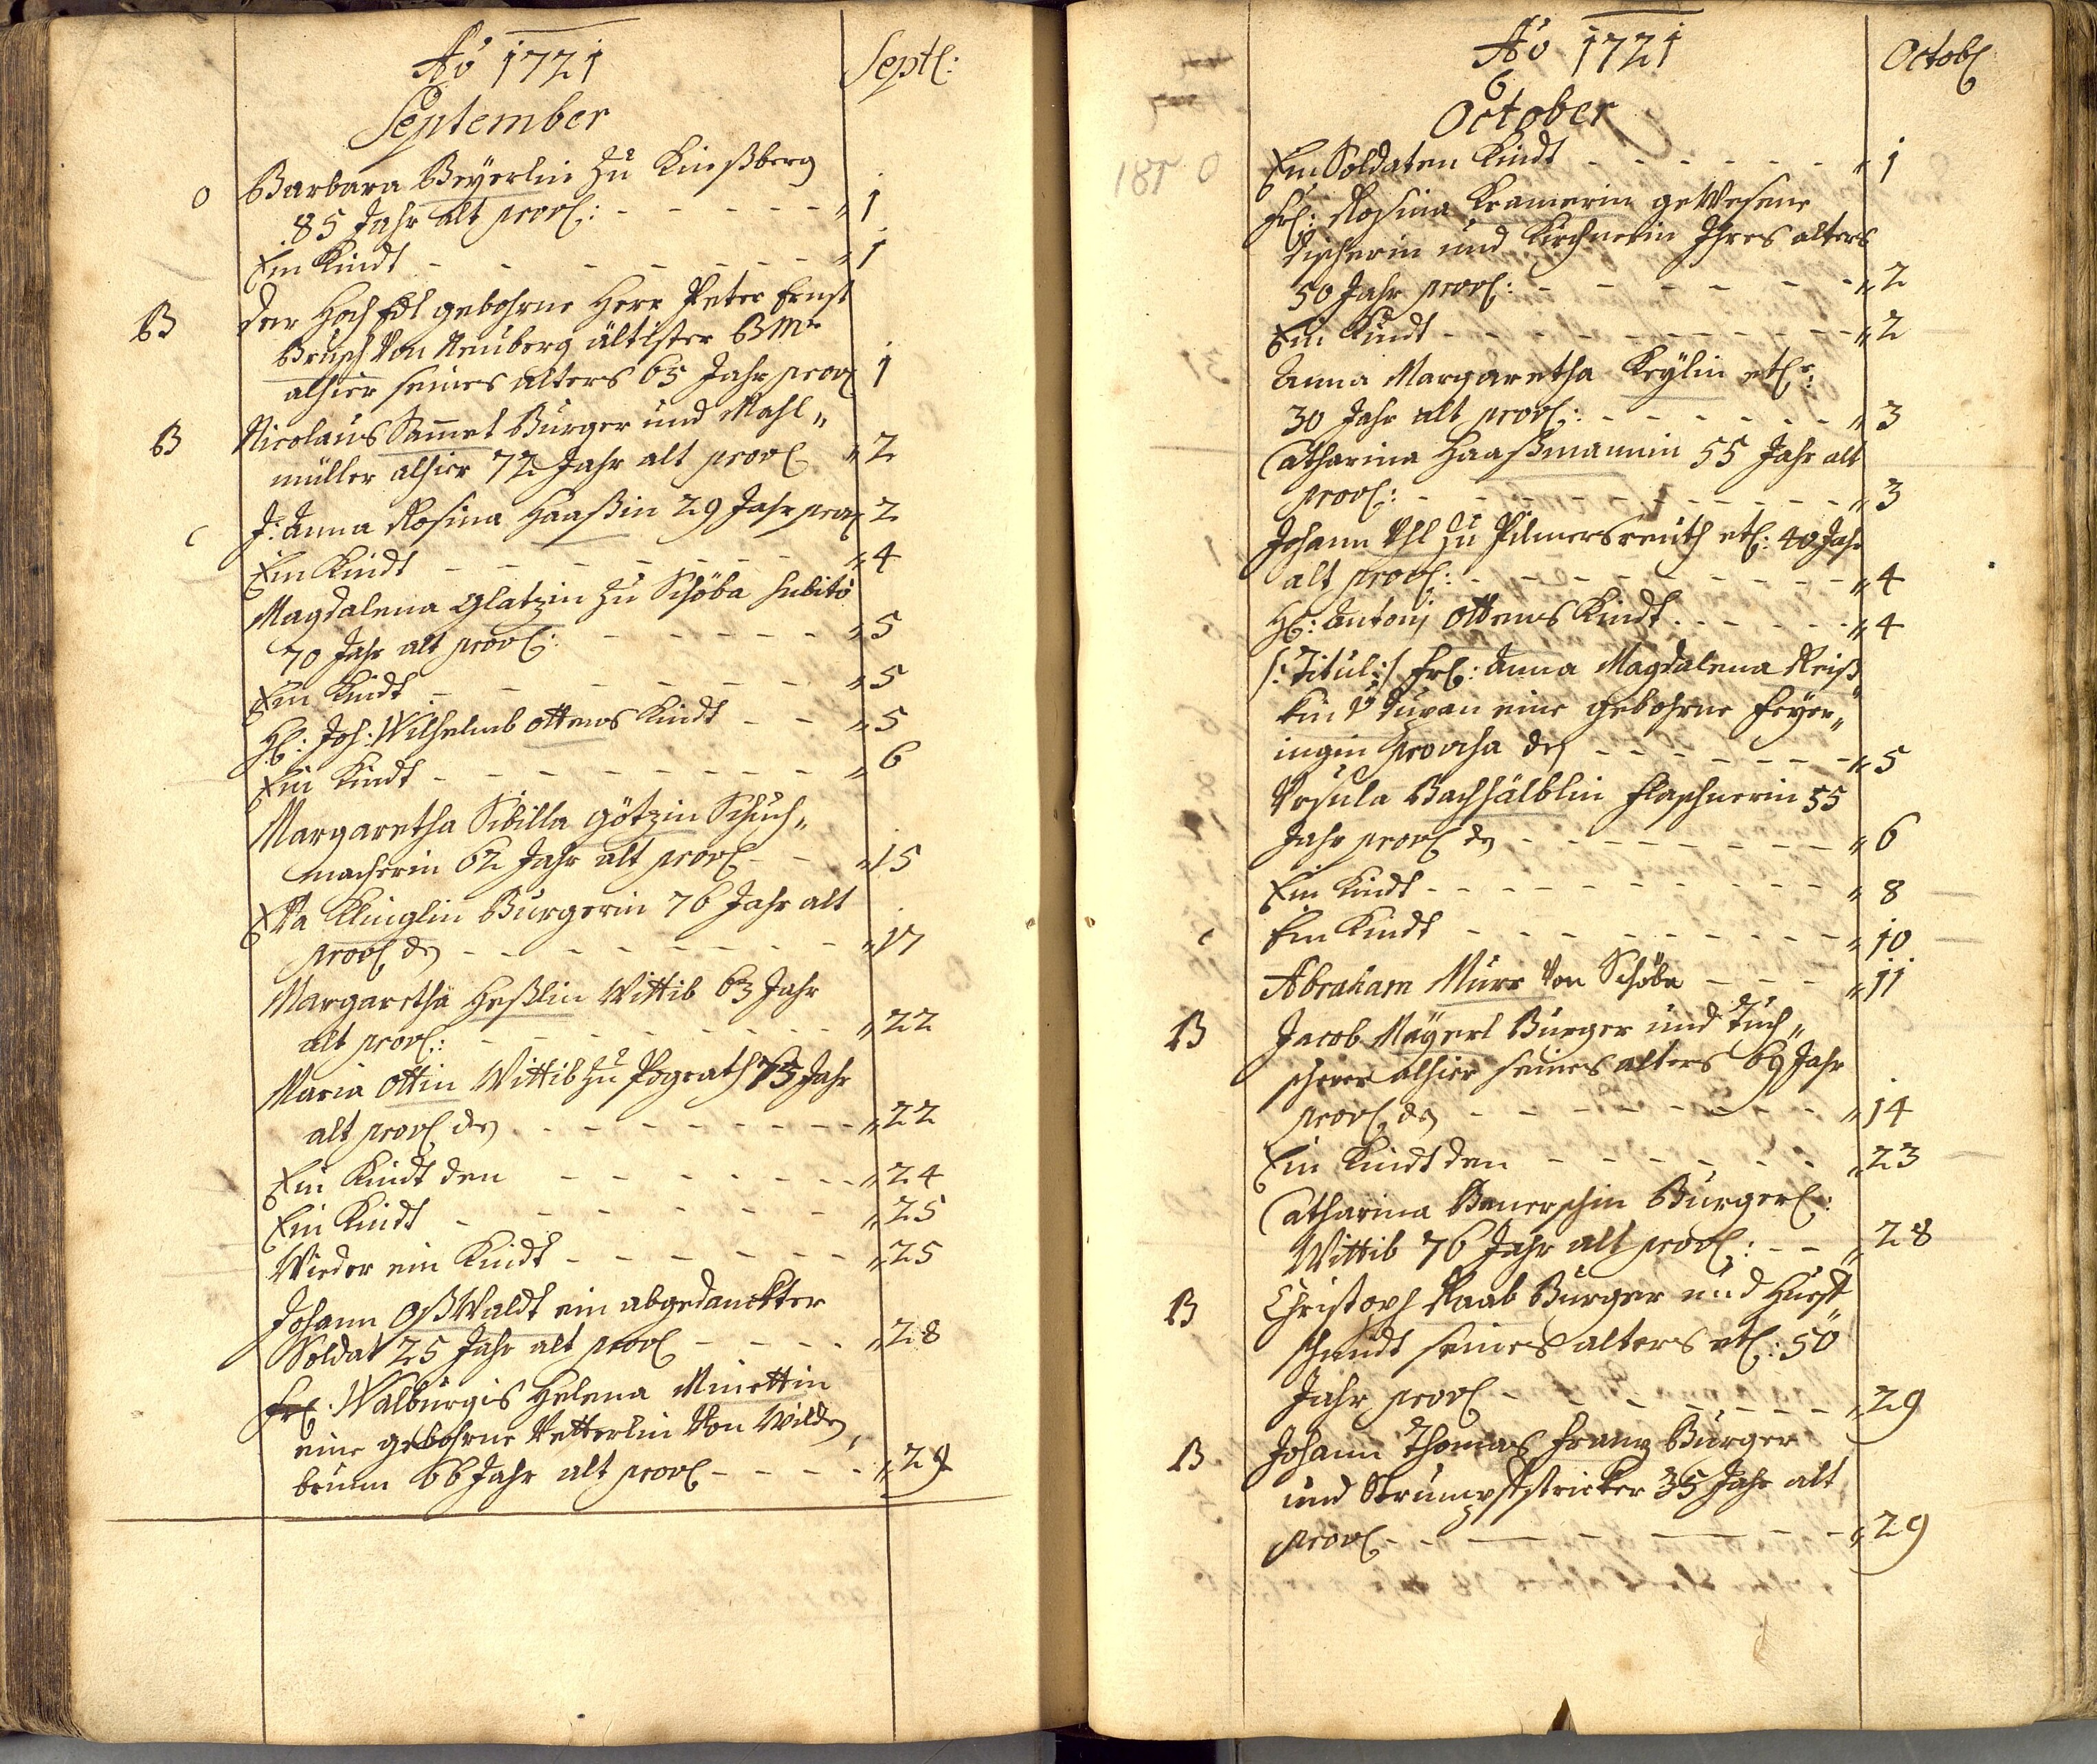 Aō 1721
Septl:
September
O Barbara Beÿerlin zu Kinßberg
85 Jahr alt prov: - - - - - " 1
Ein Kindt - - - - - - - " 1
B Der Hoch Edl gebohrne Herr Peter Ernst
Brusch von Neuberg ältister BMr
alhier seines alters 65 Jahr prov 1
B Nicolaus Samet Burger und Mahl"
müller alhier 72 Jahr alt prov " 2
c J: Anna Rosina Haaßin 29 Jahr prov 2
Ein Kindt - - - - - - - " 4
Magdalena Glatzin zu Schöba subito
70 Jahr alt prov: - - - - - " 5
Ein Kindt - - - - - - - " 5
H: Joh: Wilhelmb Ottens Kindt - - " 5
Ein Kindt - - - - - - - - " 6
Margaretha Sibilla Götzin Schuch"
macherin 62 Jahr alt prov - - " 15
Eva Klinglin Burgerin 76 Jahr alt
prov de - - - - - - - - " 17
Margaretha Heßlin Wittib 63 Jahr
alt prov: - - - - - - - - " 22
Maria Ottin Wittib zu Pograth 75 Jahr
alt prov de - - - - - - - - " 22
Ein Kindt den - - - - - - - " 24
Ein Kindt - - - - - - - - " 25
Wieder ein Kindt - - - - - - " 25
Johann Oßwaldt ein abgedanckter
Soldat 25 Jahr alt prov - - - - " 28
Fr: Walburgis Helena Minettin
eine gebohrne Vetterlin von Wilde,
brunn 66 Jahr alt prov - - - - " 29
Aō 1721
Octob
October
181 O Ein Soldaten Kindt - - - - - - " 1
Fr: Rosina Kramerin gewesene
Tischerin und Kirchnerin Ihres alters
50 Jahr prov: - - - - - - " 2
Ein Kindt - - - - - - - - - " 2
Anna Margaretha Keÿlin etc:
30 Jahr alt prov: - - - - - - " 3
Catharina Haaßmannin 55 Jahr alt
prov: - - - - - - - - - - " 3
Johann Uhl zu Pilmersreuth et: 40 Jahr
alt prov: - - - - - - - - - " 4
H: Antonj Ottens Kindt - - - - - " 4
/: Titul :/ Fr: Anna Magdalena Reiß
eine gebohrne Feÿer"
ingin de - - - - - - - " 5
Ursula Bachhälblin Flaschnerin 55
Jahr prov de - - - - - - - - " 6
Ein Kindt - - - - - - - - - " 8
c Ein Kindt - - - - - - - - - " 10
Abraham Murr von Schöba - - - - " 11
B Jacob Maÿerl Burger und Tuch"
scherer alhier seines alters 69 Jahr
prov de - - - - - - - - " 14
Ein Kindt den - - - - - - - " 23
Catharina Burger:
Wittib 76 Jahr alt prov: - - " 28
B Christoph Raab Burger und Hueff"
schmidt seines alters et: 50
Jahr prov - - - - - - - " 29
B Johann Thomas Frantz Burger
und Strumpffstricker 35 Jahr alt
prov - - - - - - - " 29